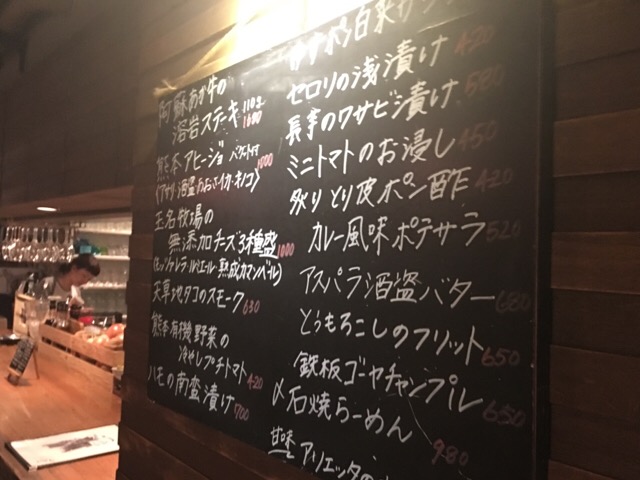 阿蘇あか牛の
溶岩ステーキ 110g 1680
熊本アヒージョ バゲット付 1000
〈アサリ・酒盗・あおさ・イカ・キノコ〉
玉名牧場の
無添加チーズ3種盛 1000
(モッツァレラ・ルミエール・熟成カマンベール)
天草地タコのスモーク 630
熊本有機野菜の
冷やしプチトマト 420
ハモの南蛮漬け 700
セロリの浅漬け 420
長芋のワサビ漬け 580
ミニトマトのお浸し 450
炙りとり皮ポン酢 420
カレー風味ポテサラ 520
アスパラ酒盗バター 680
とうもろこしのフリット 650
鉄板ゴーヤチャンプル 650
〆石焼らーめん 980
甘味 アリエッタの